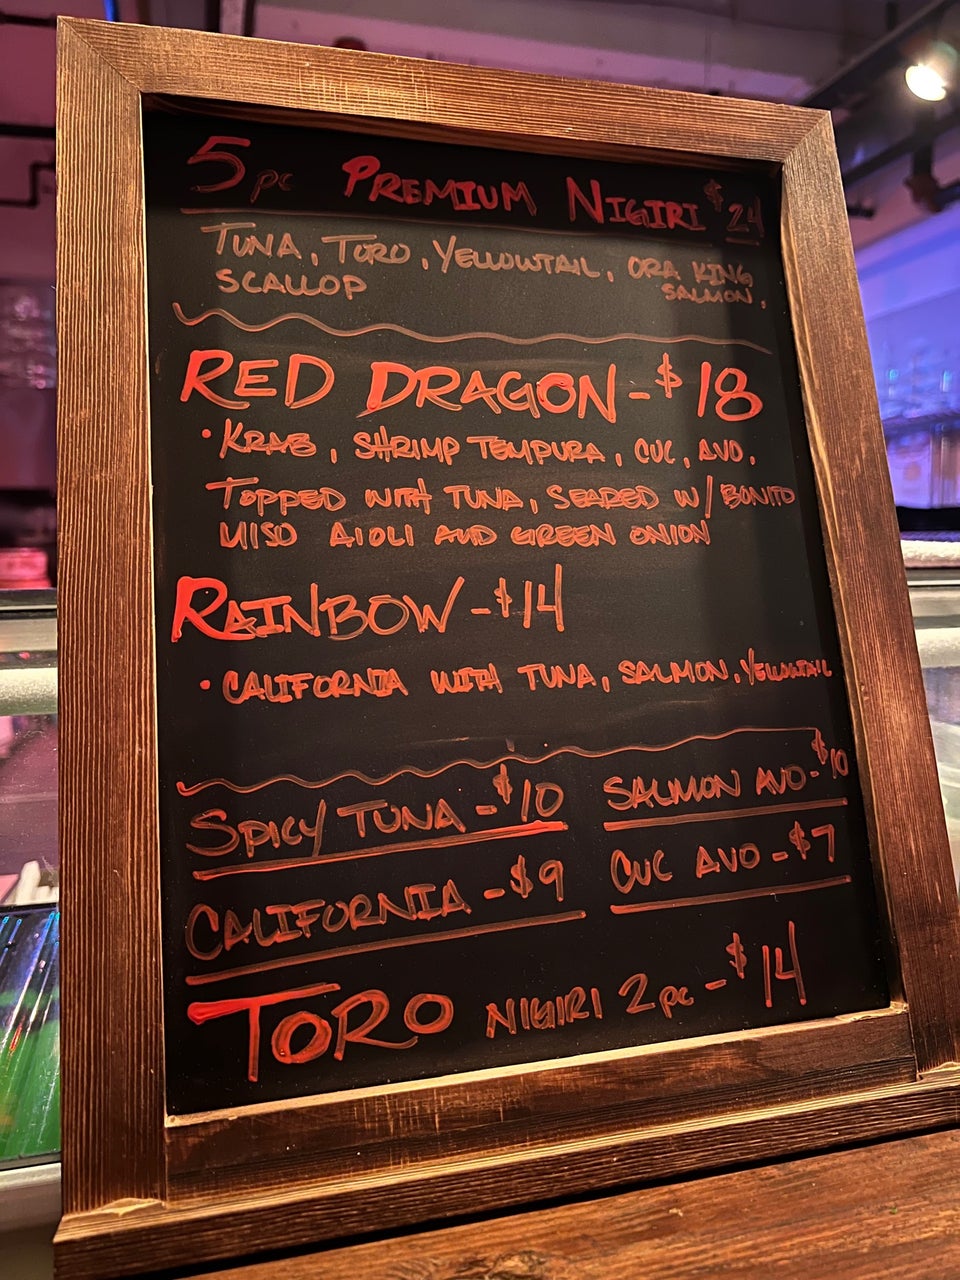 5pc PREMIUM NIGIRI $24
TUNA, TORO, YELLOWTAIL, ORA KING
SCALLOP SALMON,
RED DRAGON - $18
• KRAB, SHRIMP TEMPURA, CUC, AVO,
TOPPED WITH TUNA, SEARED W/ BONITO
MISO AIOLI AND GREEN ONION
RAINBOW - $14
• CALIFORNIA WITH TUNA, SALMON, YELLOWTAIL
SPICY TUNA - $10 SALMON AVO - $10
CALIFORNIA - $9 CUC AVO - $7
TORO NIGIRI 2pc - $14